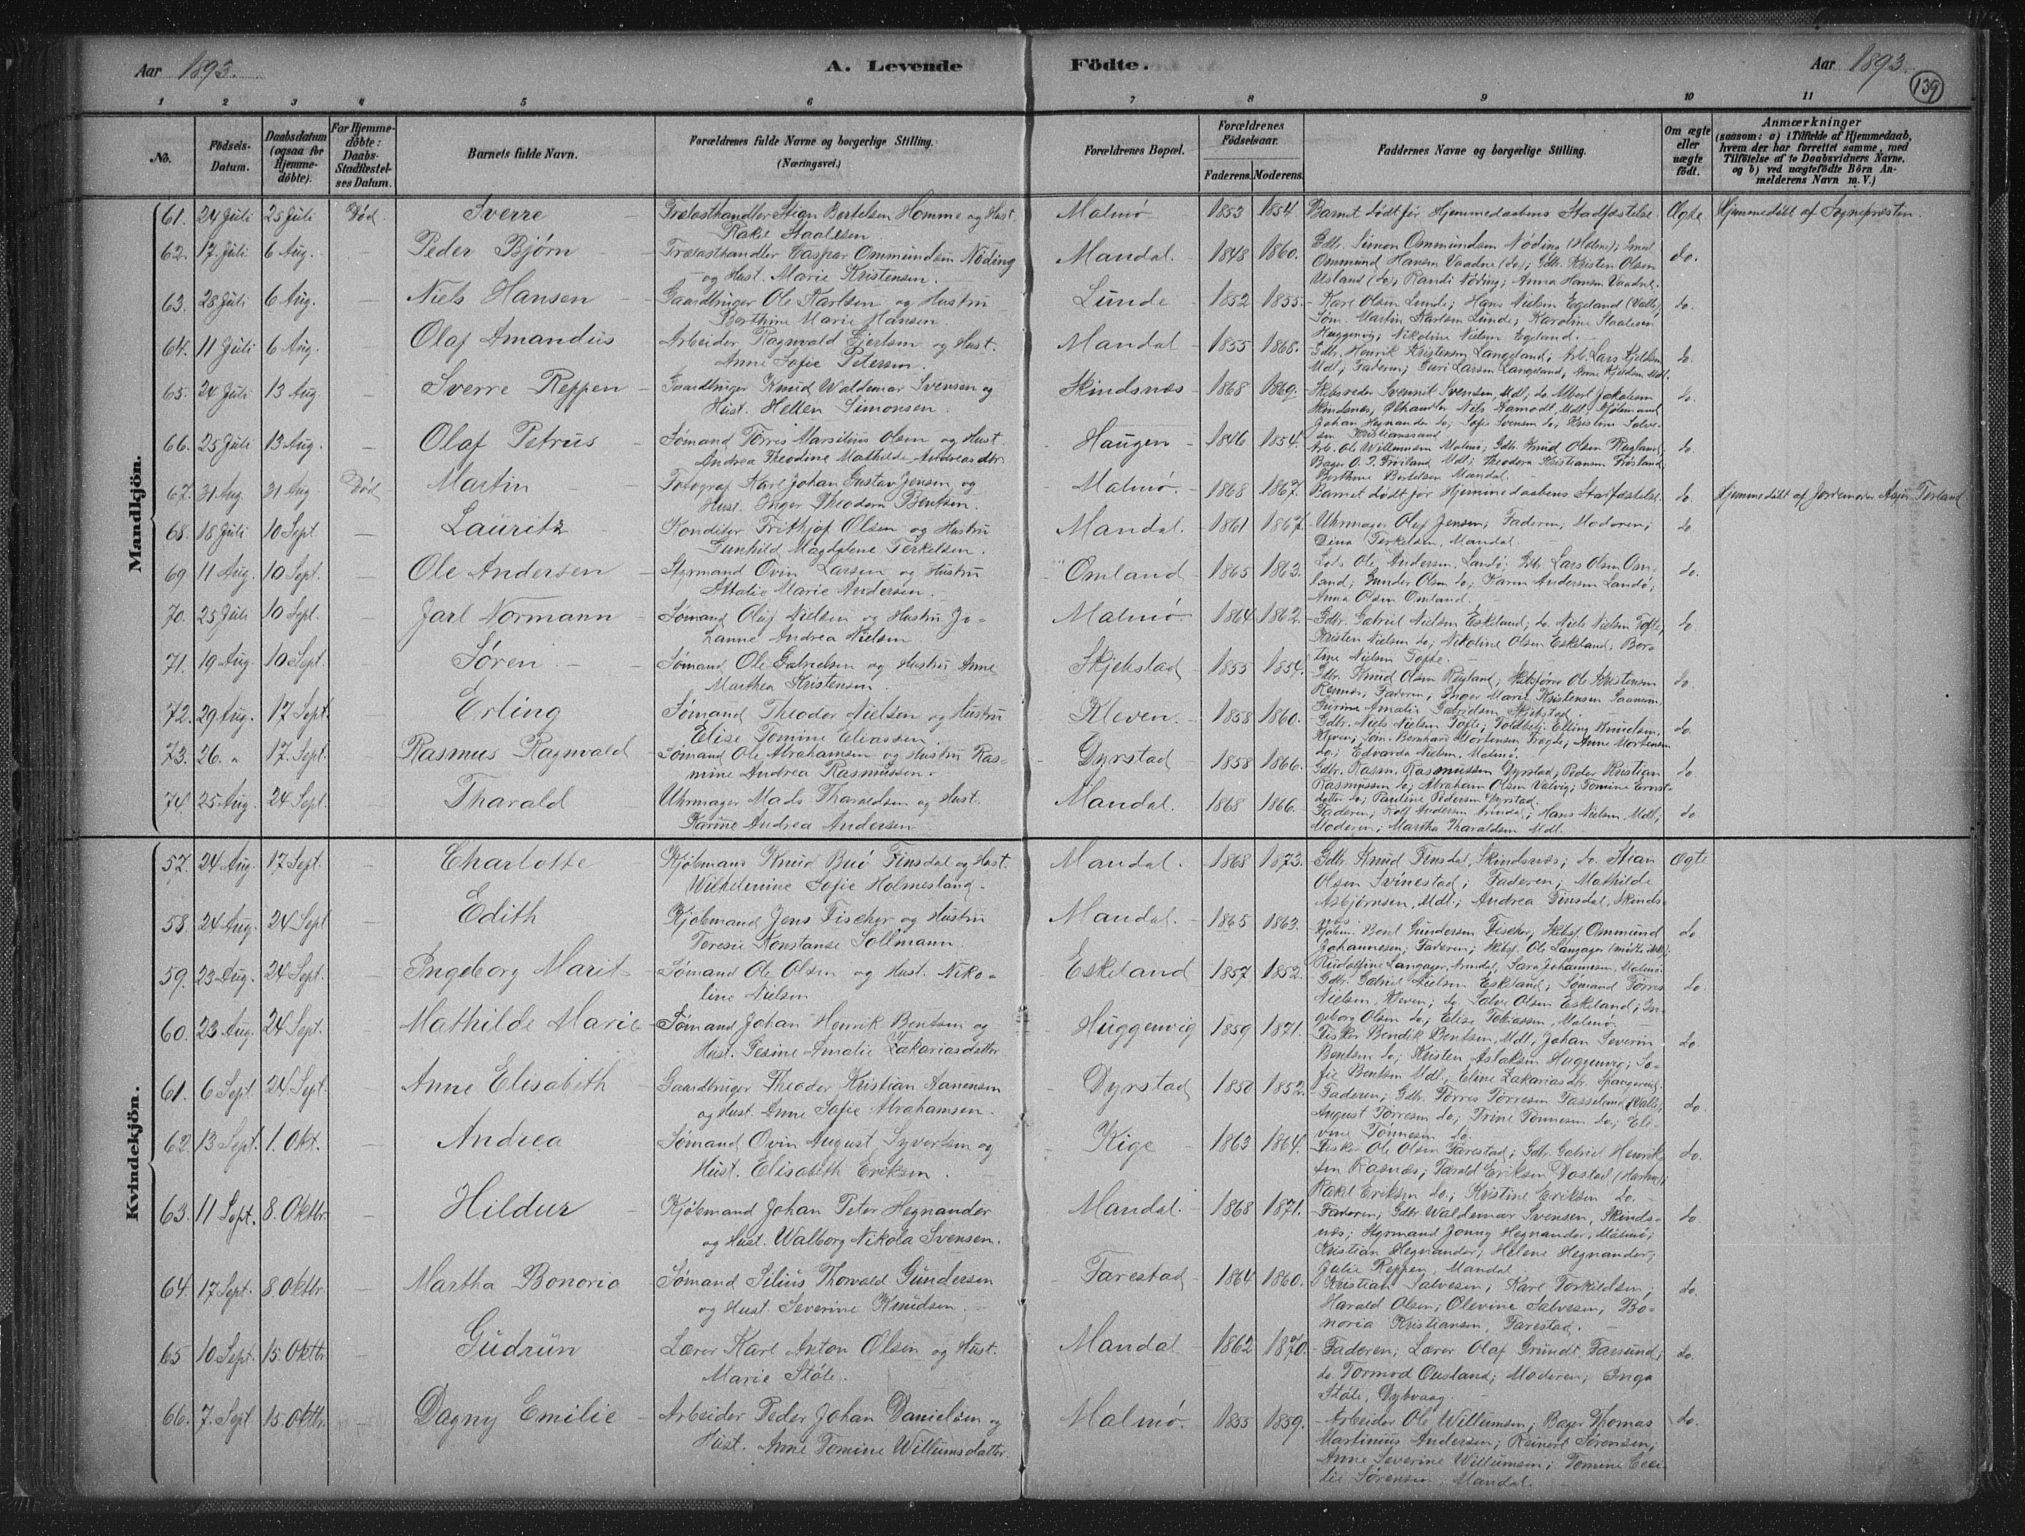 Aar 1893. A. Levende Födte. Aar 1893. 139
1 2 3 4 5 6 7 8 9 10 11
No. Födsels-Datum. Daabsdatum (ogsaa for Hjemme-döbte). For Hjemme-döbte: Daabs-Stadfæstel-ses Datum. Barnets fulde Navn. Forældrenes fulde Navne og borgerlige Stilling. (Næringsvei.) Forældrenes Bopæl. Forældrenes Födselsaar. Faderens. Moderens. Faddernes Navne og borgerlige Stilling. Om ægte eller uægte födt. Anmærkninger (saasom: a) i Tilfælde af Hjemmedaab, hvem der har forrettet samme, med Tilföielse af to Daabsvidners Navne, og b) ved uægtefödte Börn An-melderens Navn m. V.)
Mandkjön.
61. 24 Juli 25 Juli Död Sverre Trælasthandler Stian Bertelsen Homme og Hust. Malmø 1853 1854. Barnet dødt før Hjemmedaabens Stadfæstelse. Ægte Hjemmedøbt af Sognepræsten.
Rakel Staalesen
62. 17 Juli 6 Aug. Peder Bjørn Trælasthandler Caspar Ommundsen Nöding Mandal. 1848 1860. Gdbr. Simon Ommundsen Nöding (Holme);
og Hust. Marie Kristensen. Ommund Hansen Vaadne (do); Gdbr. Kristen Olsen do.
Usland (do); Randi Nöding; Anna Hansen Vaadne.
63 28 Juli 6 Aug. Niels Hansen Gaardbruger Ole Karlsen og Hustru Lunde 1852 1855. Karl Olsen Lunde; Hans Nielsen Egeland (Valle); do.
Berthine Marie Hansen Søm. Martin Karlsen Lunde; Karoline Staalesen
Huggenvig; Nikoline Nielsen Egeland.
64. 11 Juli 6 Aug. Olaf Amandus Arbeider Ragnvald Ejertsen og Hust. Mandal 1855 1868. Gdbr. Henrik Kristensen Langeland; Arb. Lars do.
Anne Sofie Petersen. Mdl; Faderen; Guri Larsen Langeland;
65. 24 Juli 13 Aug. Sverre Reppen Gaardbruger Knud Waldemar Svensen og Skindsnæs 1868 1869. Skibsreder Svennik Svensen, Mdl; do. Albert Jakobsen do.
Hust. Hellen Simonsen. Skindsnæs, Niels Mdl; Kjøbmand
Johan Hegnander do; Sofie Svensen do; Kristine Salve-
66. 25 Juli 13 Aug. Olaf Petrus Sømand Torres Marsilius Olsen og Hust. Haugen 1846 1854. sen Kristianssand
Andrea Theodine Mathilde Andreasdtr. Arb. Ole Willumsen Malmø; Gdbr. Knud Olsen Regland; do.
Bager O. T. Frøiland Mdl; Theodora Kristiansen Frøiland;
Berthine Bertelsen Mandal.
67. 31 Aug. 31 Aug Död Martin Fotograf Karl Johan Gustav Jensen og Malmø. 1868 1867. Barnet dødt før Hjemmedaabens Stadfæstelse do. Hjemmedøbt af Jordemoder Torland
Hust. Inger Theodora Bentsen.
68. 18 Juli 10 Sept Lauritz Konditor Frithjof Olsen og Hustru Mandal 1861 1867. Uhrmager Olaf Jensen; Faderen; Moderen; do
Gunhild Magdalene Terkelsen. Dina Terkelsen, Mandal.
69 11 Aug. 10 Sept. Ole Andersen Styrmand Ovin Larsen og Hustru Omland 1865 1863. Lods Ole Andersen Landø; Gdbr. Lars Olsen Om- do.
Attalie Marie Andersen. land; Gunder Olsen do; Karen Andersen Landø;
Anna Olsen Omland.
70. 25 Juli 10 Sept. Jarl Normann Sømand Olaf Nielsen og Hustru Jo- Malmø. 1864 1862. Gdbr. Gabriel Nielsen Eskeland; do. Niels Nielsen Tofte; do.
hanne Andrea Nielsen Kristen Nielsen do; Nikoline Olsen Eskeland; Ber-
71. 19 Aug. 10 Sept. Søren. Sømand Ole Gabrielsen og Hustru Anne Skjekstad 1855 1854. tine Nielsen Tofte.
Marthea Kristensen. Gdbr. Knud Olsen Regland; Skibsfører Ole Kristensen do.
Faderen; Inger Marie Kristensen
Gurine Amalie Gabrielsen Skjekstad
72. 29 Aug. 17 Sept. Erling Sømand Theodor Nielsen og Hustru Kleven. 1858 1860. Gdbr. Niels Nielsen Tofte; Toldbetj. Elling Knudsen, do.
Elise Tomine Eliassen Kleven; Søm. Bernhard Mortensen Anne Mortensen
73. 26. " 17. Sept. Rasmus Ragnvald Sømand Ole Abrahamsen og Hustru Ras- Dyrstad 1858 1866. do; Edvarda Nielsen, Malmø.
mine Andrea Rasmussen. Gdbr. Rasm. Rasmussen Dyrstad; Peder Kristian do
Rasmussen do; Abraham Olsen Valvig; Tomine Ernst-
datter do; Pauline Pedersen Dyrstad.
74. 25 Aug. 24 Sept. Tharald Uhrmager Mads Tharaldsen og Hust. Mandal. 1868 1866. Faderen; Rolf Andersen Arendal; Hans Nielsen, Mdl; do
Karine Andrea Andersen Moderen; Martha Tharaldsen Mdl.
Kvindekjön.
57. 24 Aug. 17 Sept. Charlotte Kjøbmand Knud Buø Finsdal og Hust. Mandal. 1868 1873. Gdbr. Knud Finsdal, Skindsnæs; do. Stian Ægte
Wilhelmine Sofie Holmesland. Olsen Svinestad; Faderen; Mathilde
Asbjørnsen, Mdl.; Andrea Finsdal, Skinds-
58. 24 Aug. 24 Sept Edith Kjøbmand Jens Fischer og Hustru Mandal. 1865 1863. næs
Teresie Konstanse Sollmann. Kjøbm. Bent Gundersen Fischer; Skibsf. Ommund do
Johannesen; Faderen; Skibsf. Ole Langager
59. 23 Aug. 24 Sept. Ingeborg Marit Sømand Ole Olsen og Hust. Niko- Eskeland 1857 1852. Rudolfine Langager, Arendal; Sara Johannesen, Malmø.
line Nielsen Gdbr. Gabriel Nielsen Eskeland; Sømand Torres do.
Nielsen, Kleven; do. Salve Olsen Eskeland; In-
60. 23 Aug. 24 Sept. Mathilde Marie Sømand Johan Henrik Bentsen og Huggenvig 1859 1871. geborg Olsen do; Elise Tobiassen, Malmø.
Hust. Tesine Amalie Zakariasdatter Fisker Bendik Bentsen Mdl; Johan Severin do.
Bentsen do; Kristen Aslaksen Huggenvig; So-
61. 6 Sept. 24 Sept. Anne Elisabeth Gaardbruger Theodor Kristian Aanensen Dyrstad 1850 1852. fie Bentsen Mdl; Eline Zakariasdtr. Spangereid
og Hust. Anne Sofie Abrahamsen. Faderen; Gdbr. Torres Torresen (Valle); do.
August Torresen do; Trine Tønnesen do; Ele-
62. 13 Sept. 1. Okt. Andrea Sømand Ovin August Syvertsen og Kige 1863 1864. vine Tønnesen do.
Hust. Elisabeth Eriksen. Fisker Ole Olsen Farestad; Gdbr. Gabriel Henrik- do.
sen Tarald Eriksen Dostad (Harkm.);
Rakel Eriksen do; Kristine Eriksen do.
63. 11 Sept. 8. Oktbr. Hildur Kjøbmand Johan Peter Hegnander Mandal. 1868 1871. Faderen; Gdbr Waldemar Svensen, Skinds- do
og Hust. Walborg Nikola Svensen. næs; Styrmand Jonny Hegnander, Malmø;
Kristian Hegnander; Helene Hegnander;
Julie Reppen, Mandal
64. 17 Sept. 8 Oktbr. Martha Bonoria Sømand Silius Thorvald Gundersen Farestad 1864 1860. Kristian Salvesen; Karl Torkildsen; do.
og Hust. Severine Knudsen. Harald Olsen; Olevine Salvesen; Bo-
noria Kristiansen, Farestad.
65 10 Sept. 15 Oktbr Gudrun Lærer Karl Anton Olsen og Hust. Mandal 1862 1870. Faderen; Lærer Olaf Grundt Farsund; do.
Marie Støle. do. Tormod Ousland; Moderen; Inga
Støle, Dybvaag.
66. 7. Sept. 15 Oktbr. Dagny Emilie Arbeider Peder Johan Danielsen og Malmø. 1855 1859. Arbeider Ole Willumsen; Bager Thomas do.
Hust. Anne Tomine Willumsdatter. Martinius Andersen; Reinert Sørensen;
Anne Severine Willumsen; Tomine Ceci-
lie Sørensen, Mandal.